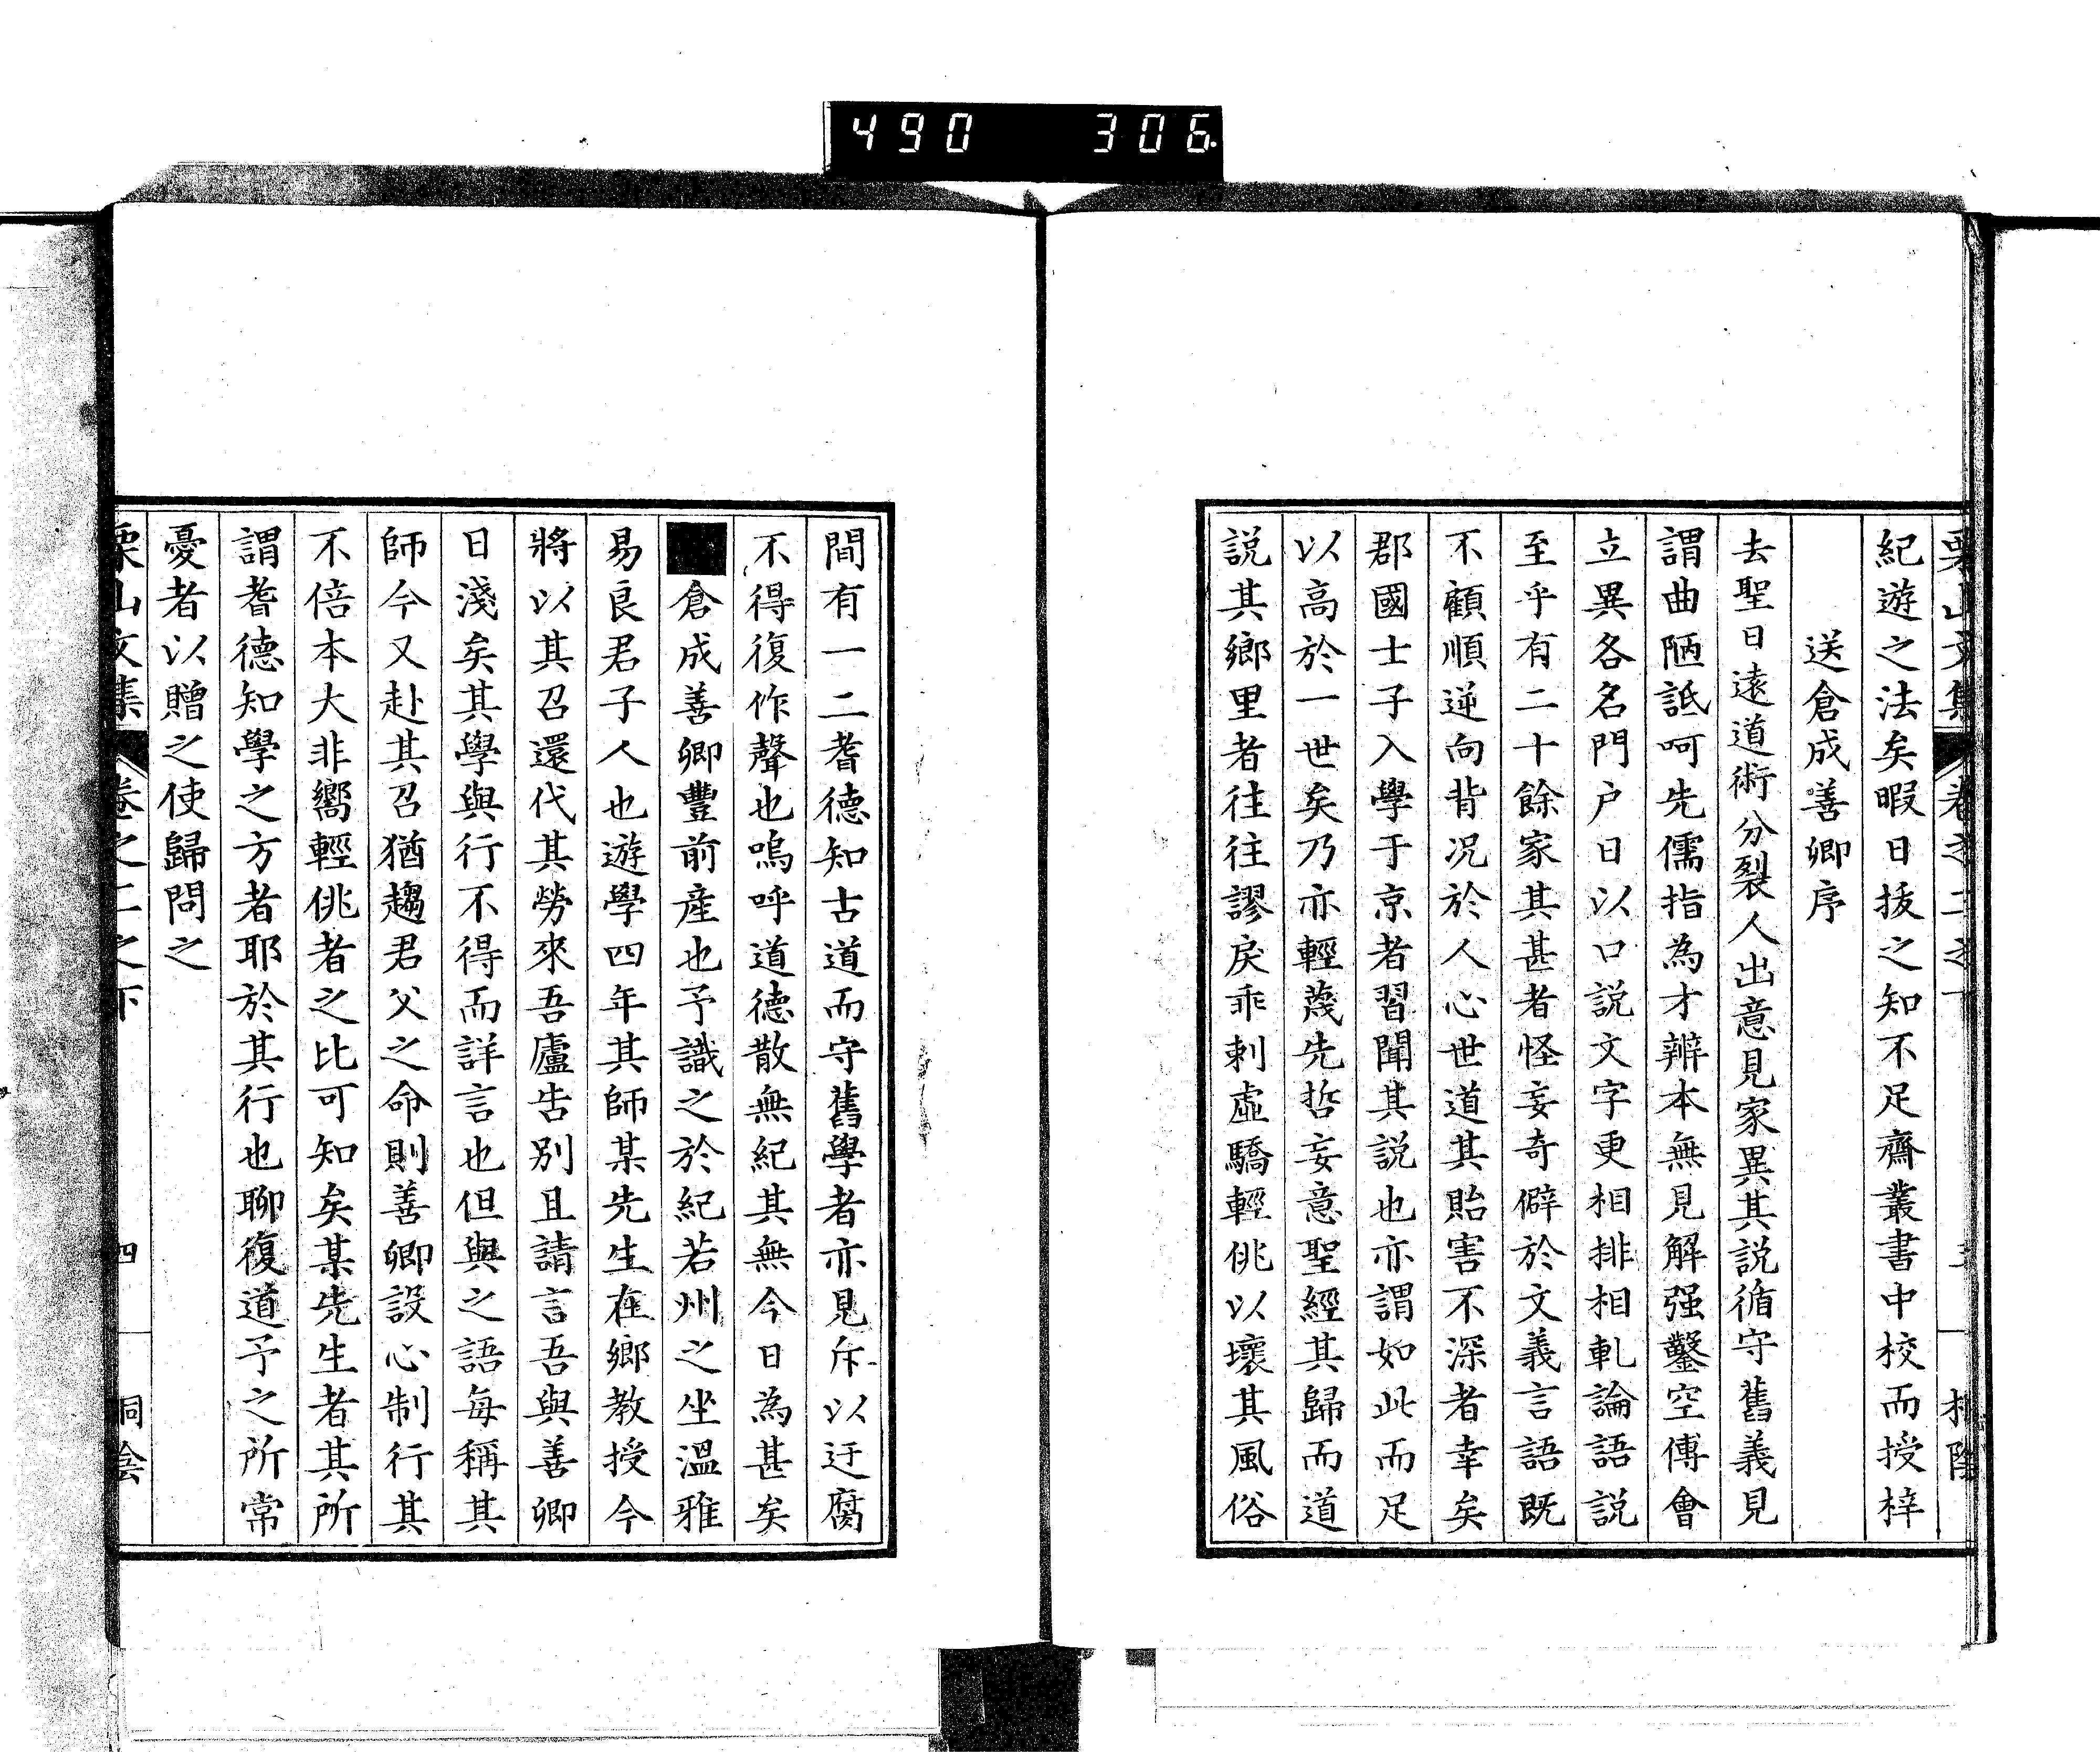 490 306
栗山文集 卷之二之下
紀遊之法矣暇日抜之知不足齊叢書中校而授梓
送倉成善卿序
去聖日遠道術分裂人出意見家異其説循守舊義見
謂曲陋詆呵先儒指為才辨本無見解强鑿空傅會
立異各名門户日以口説文字更相排相軋論語説
至乎有二十餘家其甚者怪妄奇僻於文義言語既
不顧順逆向背况於人心世道其貽害不深者幸矣
郡國士子入學于京者習聞其説也亦謂如此而足
以高於一世矣乃亦輕蔑先哲妄意聖經其歸而道
説其鄉里者往往謬戾乖剌虛驕輕佻以壞其風俗
間有一二耆德知古道而守舊學者亦見斥以迂腐
不得復作聲也嗚呼道德散無紀其無今日為甚矣
倉成善卿豐前産也予識之於紀若州之坐溫雅
易良君子人也遊學四年其師某先生在鄉教授今
將以其召還代其勞來吾廬告别且請言吾與善卿
日淺矣其學與行不得而詳言也但與之語每稱其
師今又赴其召猶趨君父之命則善卿設心制行其
不倍本大非嚮輕佻者之比可知矣某先生者其所
謂耆德知學之方者耶於其行也聊復道予之所常
憂者以贈之使歸問之
栗山文集 卷之二之下 四 桐陰